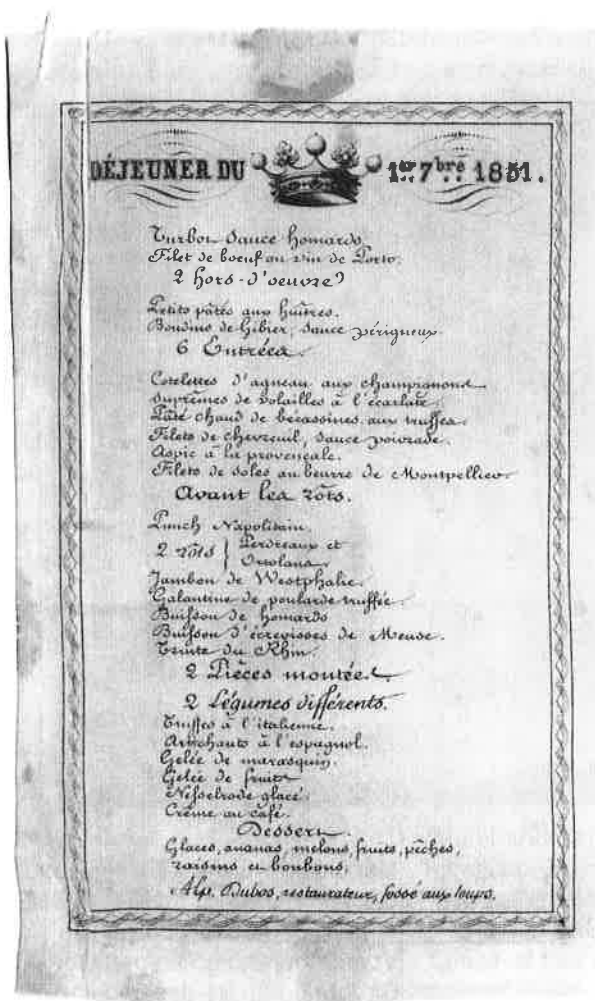 DÉJEUNER DU 1er 7bre 1851.
Turbot sauce homards.
Filet de boeuf au vin de Porto.
2 hors-d'oeuvre
Petits pâtés aux huîtres.
Boudins de Gibier, sauce périgueux
6 Entrées.
Cotelettes d'agneau aux champignons
Suprêmes de volailles à l'écarlate.
Pâté chaud de bécassines aux truffes.
Filets de chevreuil, sauce poivrade.
Aspic à la provençale.
Filets de soles au beurre de Montpellier.
Avant les rôts.
Punch Napolitain.
2 rôts { Perdreaux et
Ortolans.
Jambon de Westphalie.
Galantine de poularde truffée.
Buisson de homards
Buisson d'écrevisses de Meuse.
Truite du Rhin.
2 Pièces montées
2 Légumes différents.
Truffes à l'italienne.
Artichauts à l'espagnol.
Gelée de marasquin.
Gelée de fruits
Nesselrode glacé.
Crême au café.
Dessert.
Glaces, ananas, melons, fruits, pêches,
raisins et bonbons.
Alp. Dubos, restaurateur, fossé aux loups.